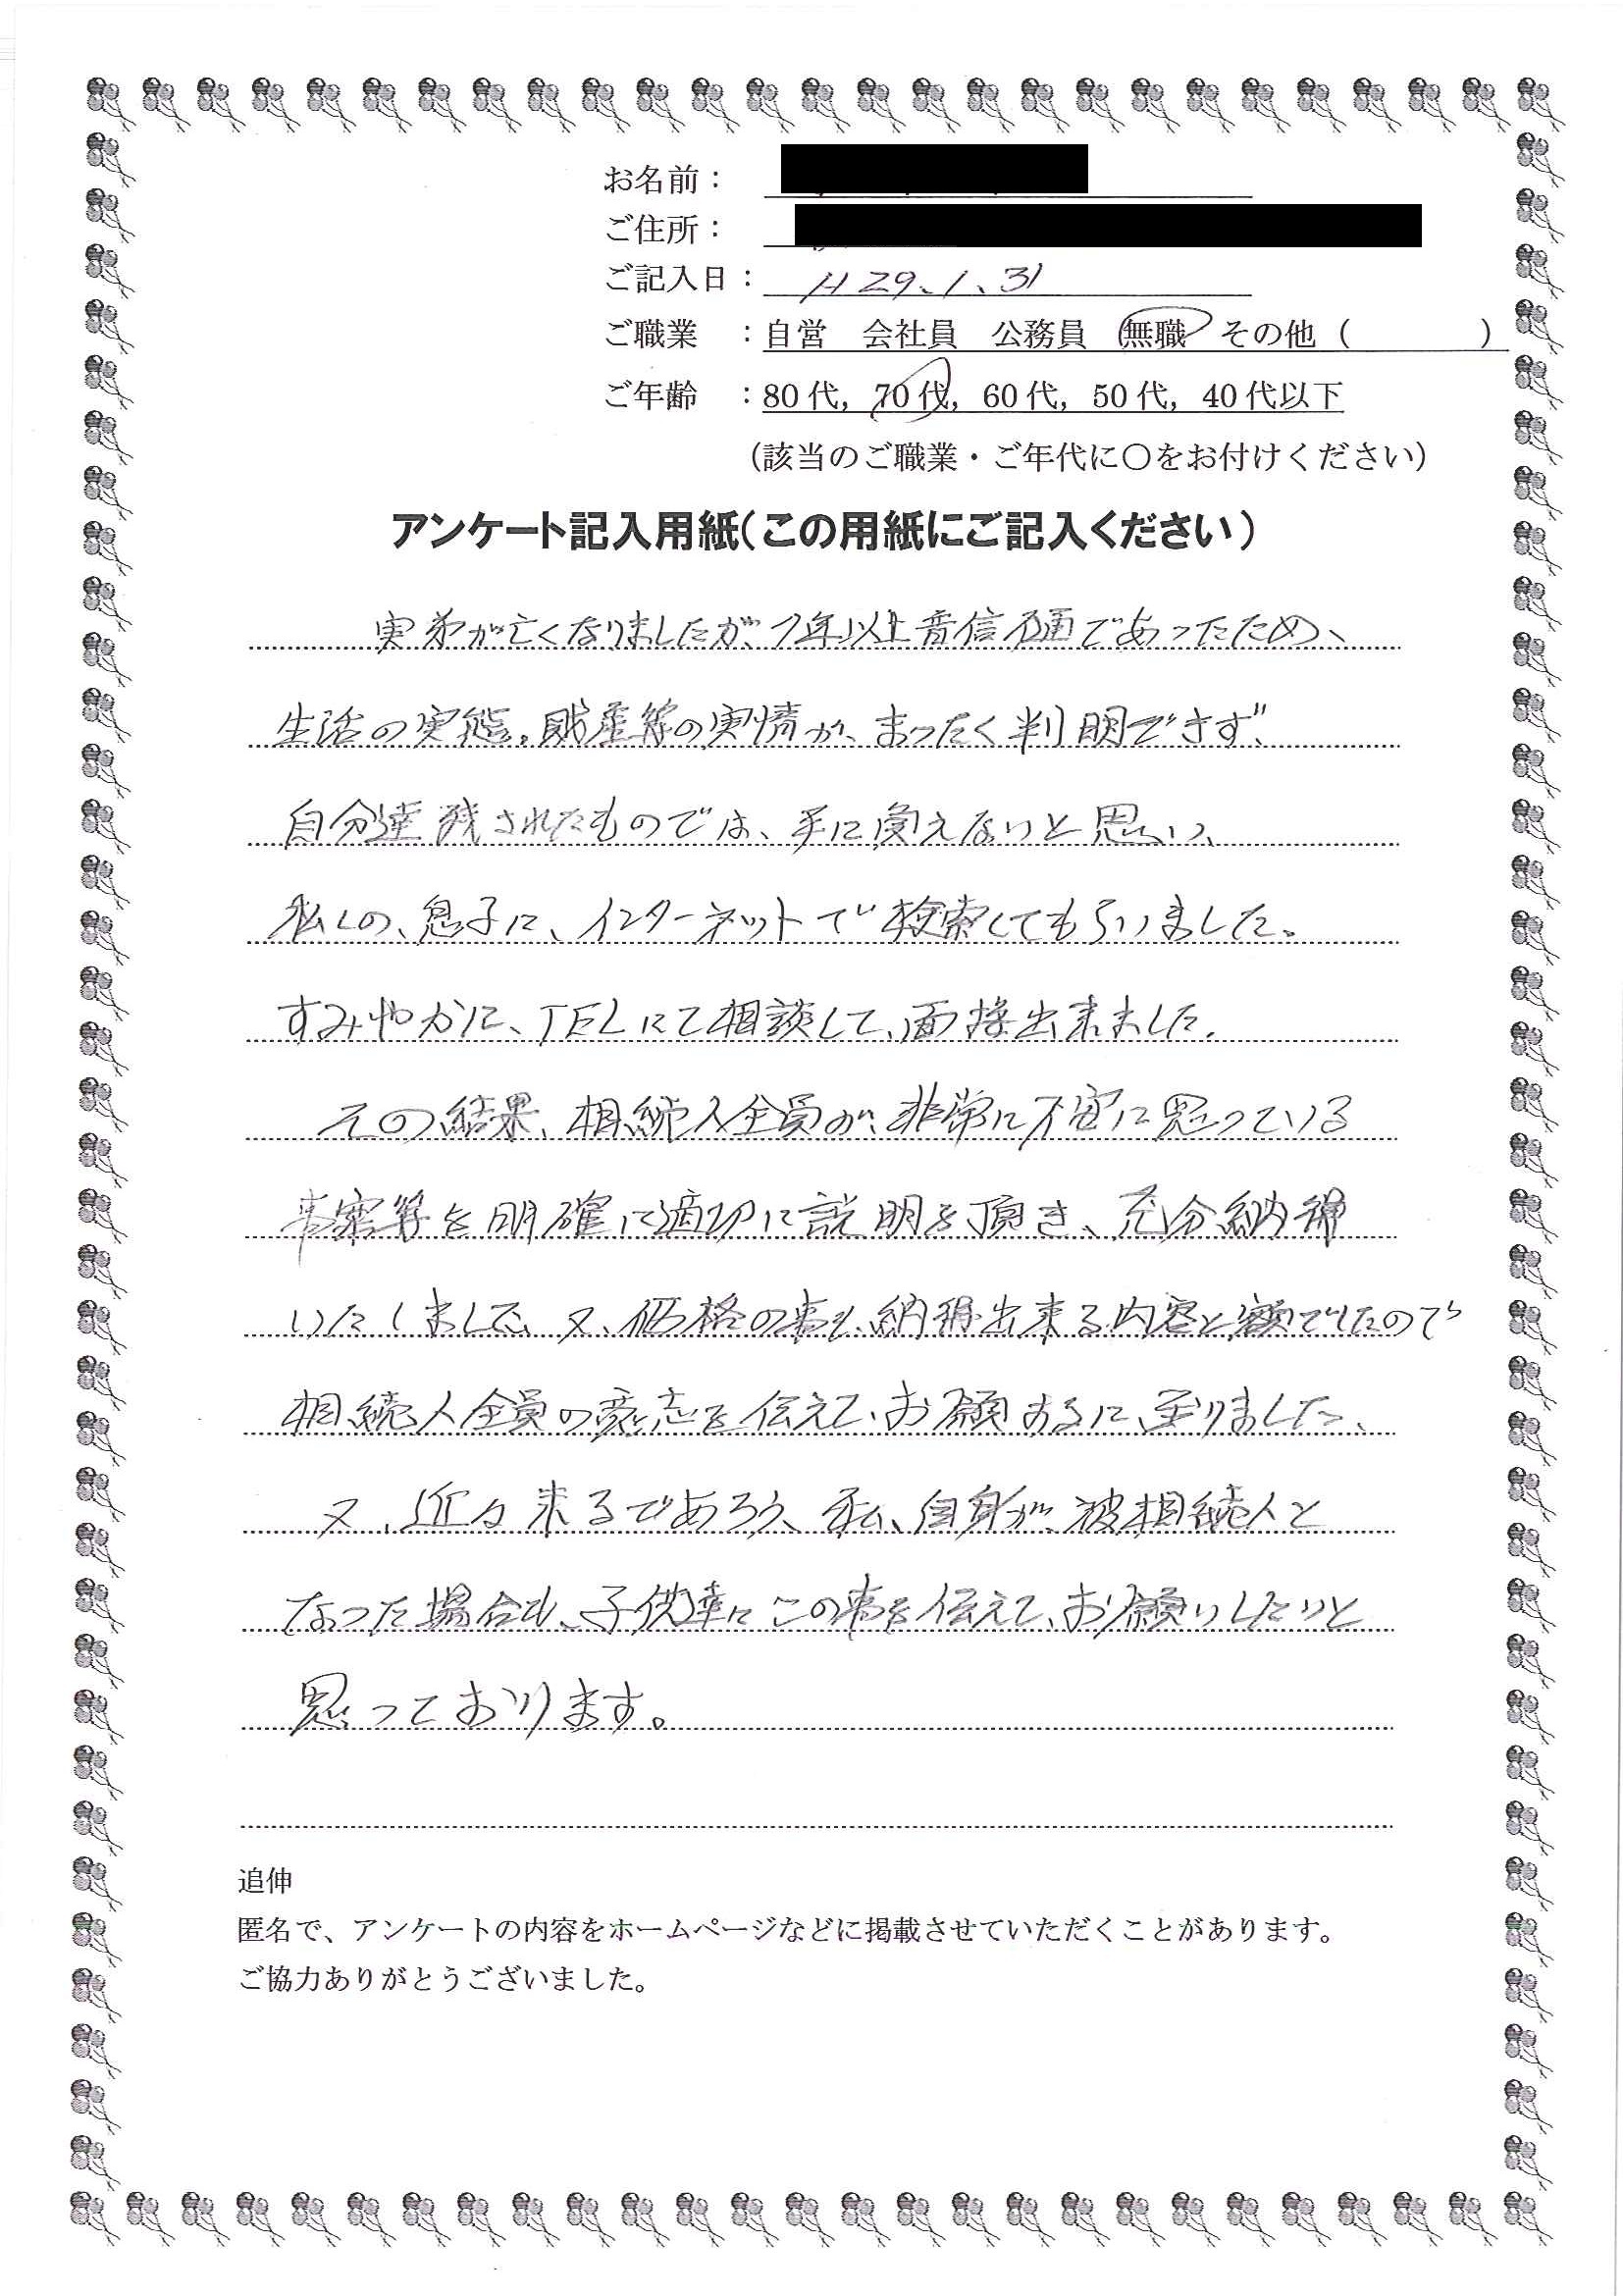 お名前：
ご住所：
ご記入日：H29.1.31
ご職業　：自営　会社員　公務員　無職　その他（　　　　）
ご年齢　：80代，70代，60代，50代，40代以下
（該当のご職業・ご年代に〇をお付けください）
アンケート記入用紙（この用紙にご記入ください）
実弟が亡くなりましたが、7年以上音信不通であったため、
生活の実態，財産等の実情が、まったく判明できず、
自分達残されたものでは、手に負えないと思い、
私しの、息子に、インターネットで検索してもらいました。
すみやかに、TELにて相談して、面接出来ました。
その結果、相続人全員が、非常に不安に思っている
事案等を明確に適切に説明を頂き、充分納得
いたしまして、又、価格の事も、納得出来る内容と額でしたので
相続人全員の意志を伝えて、お願するに、至りました、
又、近々来るであろう、私、自身が、被相続人と
なった場合も、子供達にこの事を伝えて、お願いしたいと
思っております。
追伸
匿名で、アンケートの内容をホームページなどに掲載させていただくことがあります。
ご協力ありがとうございました。